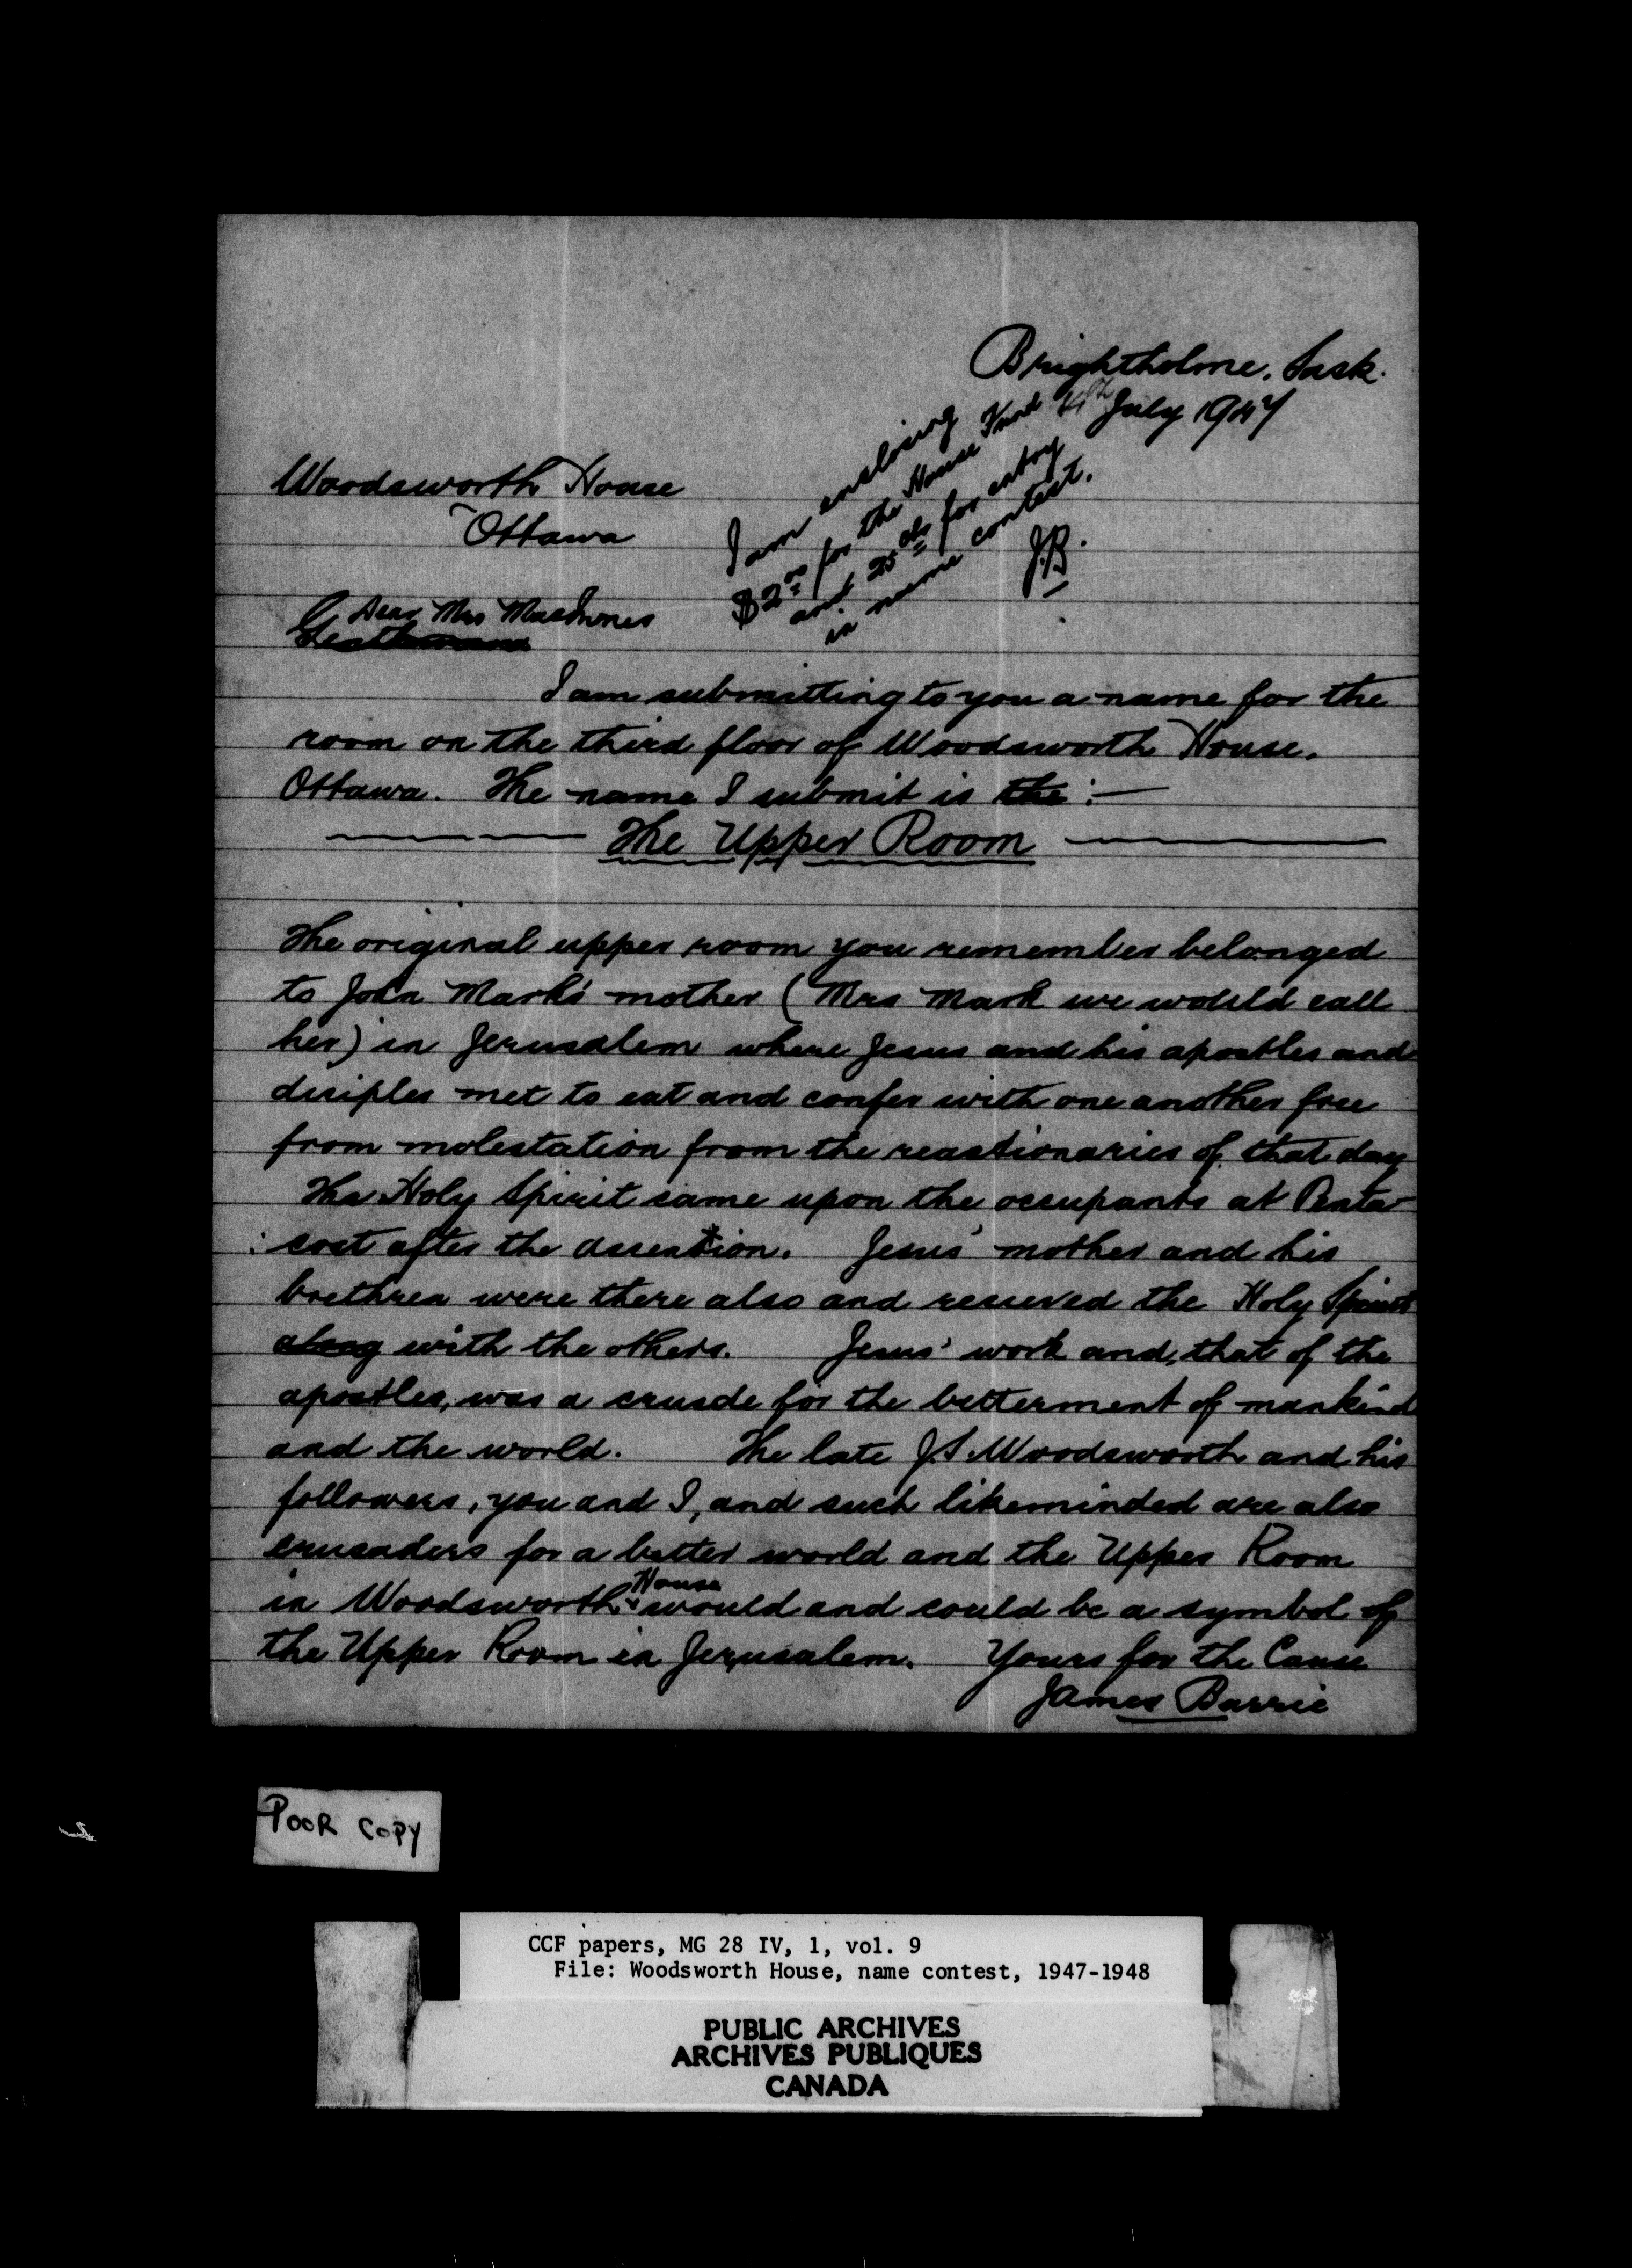 Brightholme, Sask.
4th July 1947
I am enclosing
$2.00 for the House Fund
and 25 cts for entry
in name contest.
J.B.
Woodsworth House
Ottawa
Dear Mrs MacInnes
Gentlemen
I am submitting to you a name for the
room on the third floor of Woodsworth House.
Ottawa. The name I submit is the :—
The Upper Room
The original upper room you remember belonged
to John Mark's mother (Mrs Mark we would call
her) in Jerusalem where Jesus and his apostles and
disiples met to eat and confer with one another free
from molestation from the reactionaries of that day
The Holy Spirit came upon the occupants at Penta-
:cost after the assention. Jesus' mother and his
brethren were there also and received the Holy Spirit
along with the others. Jesus' work and, that of the
apostles, was a crusde for the betterment of mankind
and the world. The late J.S. Woodsworth and his
followers, you and I, and such likeminded are also
crusaders for a better world and the Upper Room
in Woodsworth House would and could be a symbol of
the Upper Room in Jerusalem. Yours for the Cause
James Barrie
POOR COPY
CCF papers, MG 28 IV, 1, vol. 9
File: Woodsworth House, name contest, 1947-1948
PUBLIC ARCHIVES
ARCHIVES PUBLIQUES
CANADA